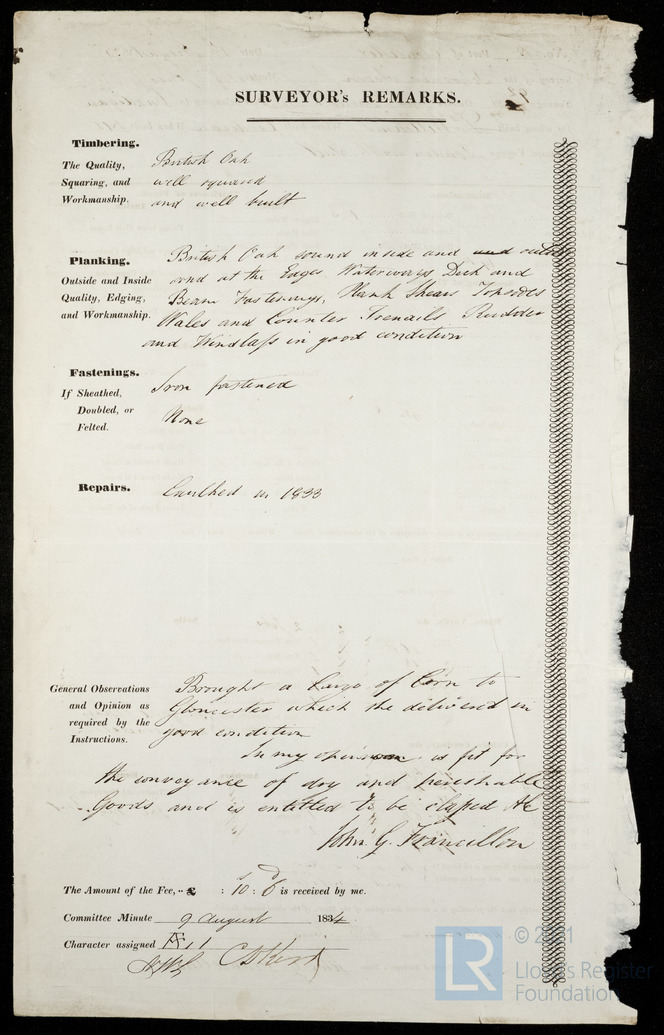 SURVEYOR's REMARKS.
Timbering.
The Quality,
Squaring, and
Workmanship.
British Oak
well squared
and well built
Planking.
Outside and Inside
Quality, Edging,
and Workmanship.
British Oak sound inside and and outside
and at the Edges Waterways Deck and
Beam Fastenings, Plank Shears Topsides
Wales and Counter Trenails Rudder
and Windlass in good condition
Fastenings.
If Sheathed,
Doubled, or
Felted.
Iron fastened
None
Repairs.
Caulked in 1833
General Observations
and Opinion as
required by the
Instructions.
Brought a Cargo of Corn to
Gloucester which she delivered in
good condition
In my opinion is fit for
the conveyance of dry and perishable
Goods and is entitled to be classed Æ
John G. Francillon
The Amount of the Fee, £ : 10 : 6 is received by me.
Committee Minute 9 August 1834
Character assigned Æ 1
© 2021
LR
Lloyd's Register
Foundation